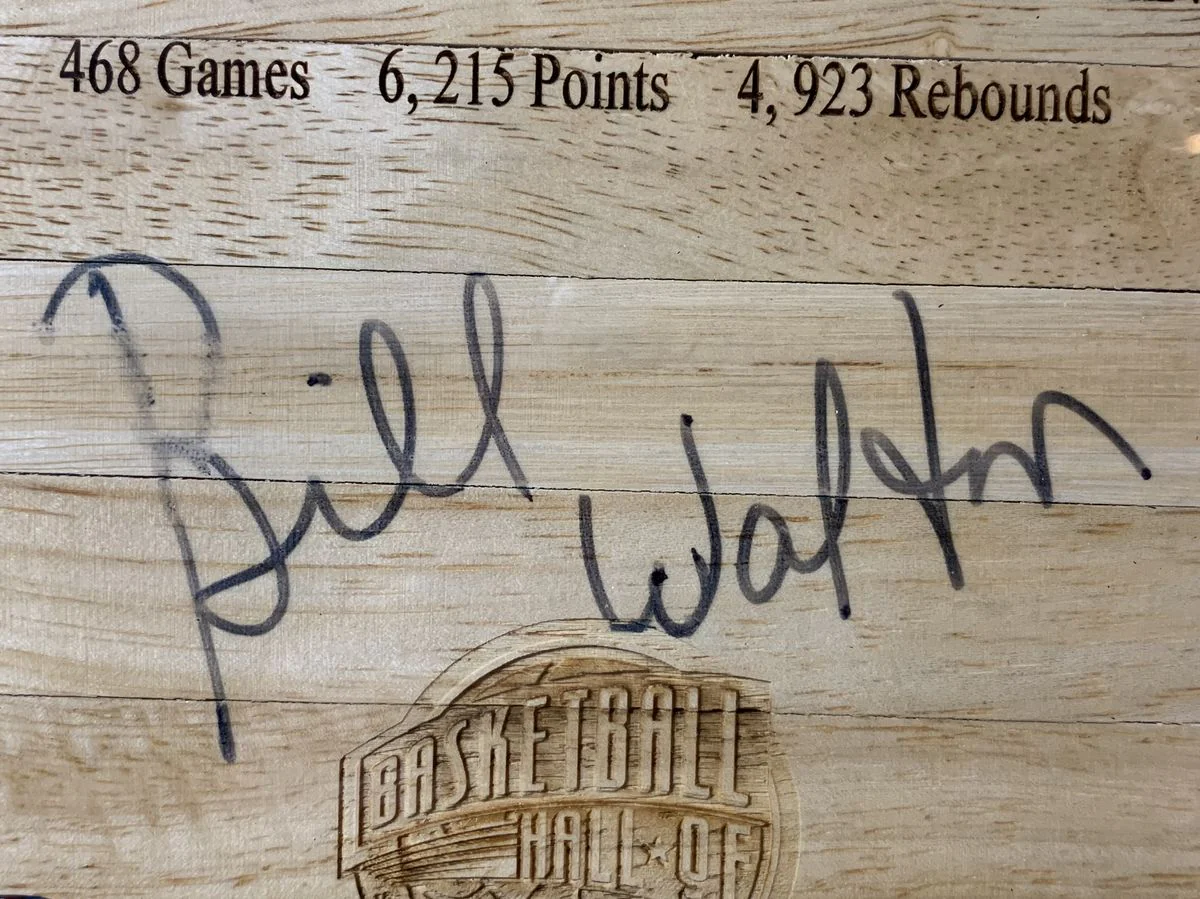 468 Games 6,215 Points 4,923 Rebounds
Bill Walton
BASKETBALL
HALL OF